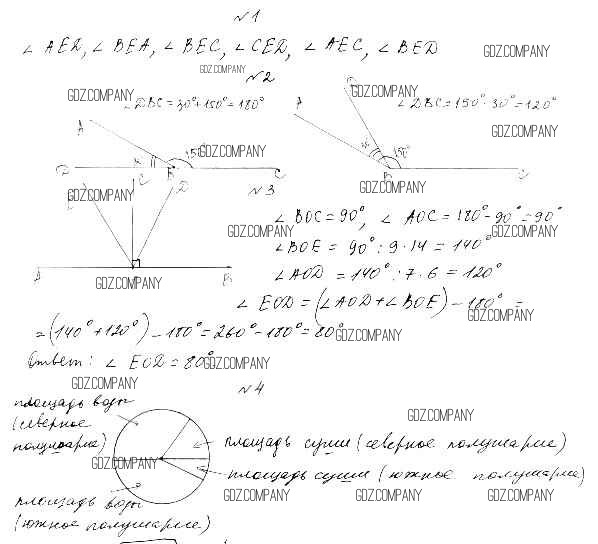 №1
∠ AED, ∠ BEA, ∠ BEC, ∠ CED, ∠ AEC, ∠ BED
GDZ.COMPANY
GDZ.COMPANY
№2
GDZ.COMPANY
∠DBC=30°+150°=180°
A
150°
GDZ.COMPANY
D
B
C
GDZ.COMPANY
A
∠DBC=150°-30°=120°
GDZ.COMPANY
150°
B
C
GDZ.COMPANY
№3
GDZ.COMPANY
C
D
E
A
B
GDZ.COMPANY
∠BOC=90°, ∠AOC=180°-90°=90°
GDZ.COMPANY
GDZ.COMPANY
∠BOE = 90°:9·14=140°
∠AOD =140°:7·6=120°
∠ EOD=(∠AOD+∠BOE)-180°=
GDZ.COMPANY
=(140°+120°)-180°=260°-180°=80°
GDZ.COMPANY
Ответ: ∠ EOD=80°
GDZ.COMPANY
GDZ.COMPANY
№4
площадь воды
(северное
полушарие)
GDZ.COMPANY
площадь суши (северное полушарие)
GDZ.COMPANY
площадь суши (южное полушарие)
площадь воды
(южное полушарие)
GDZ.COMPANY
GDZ.COMPANY
GDZ.COMPANY